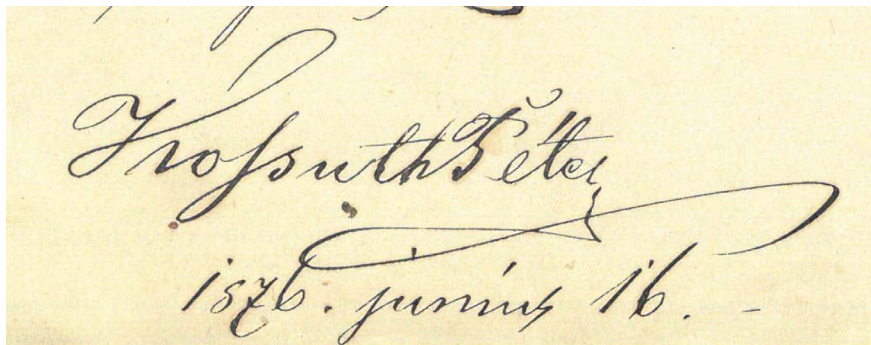 Kossuth Péter
1876. június 16. -